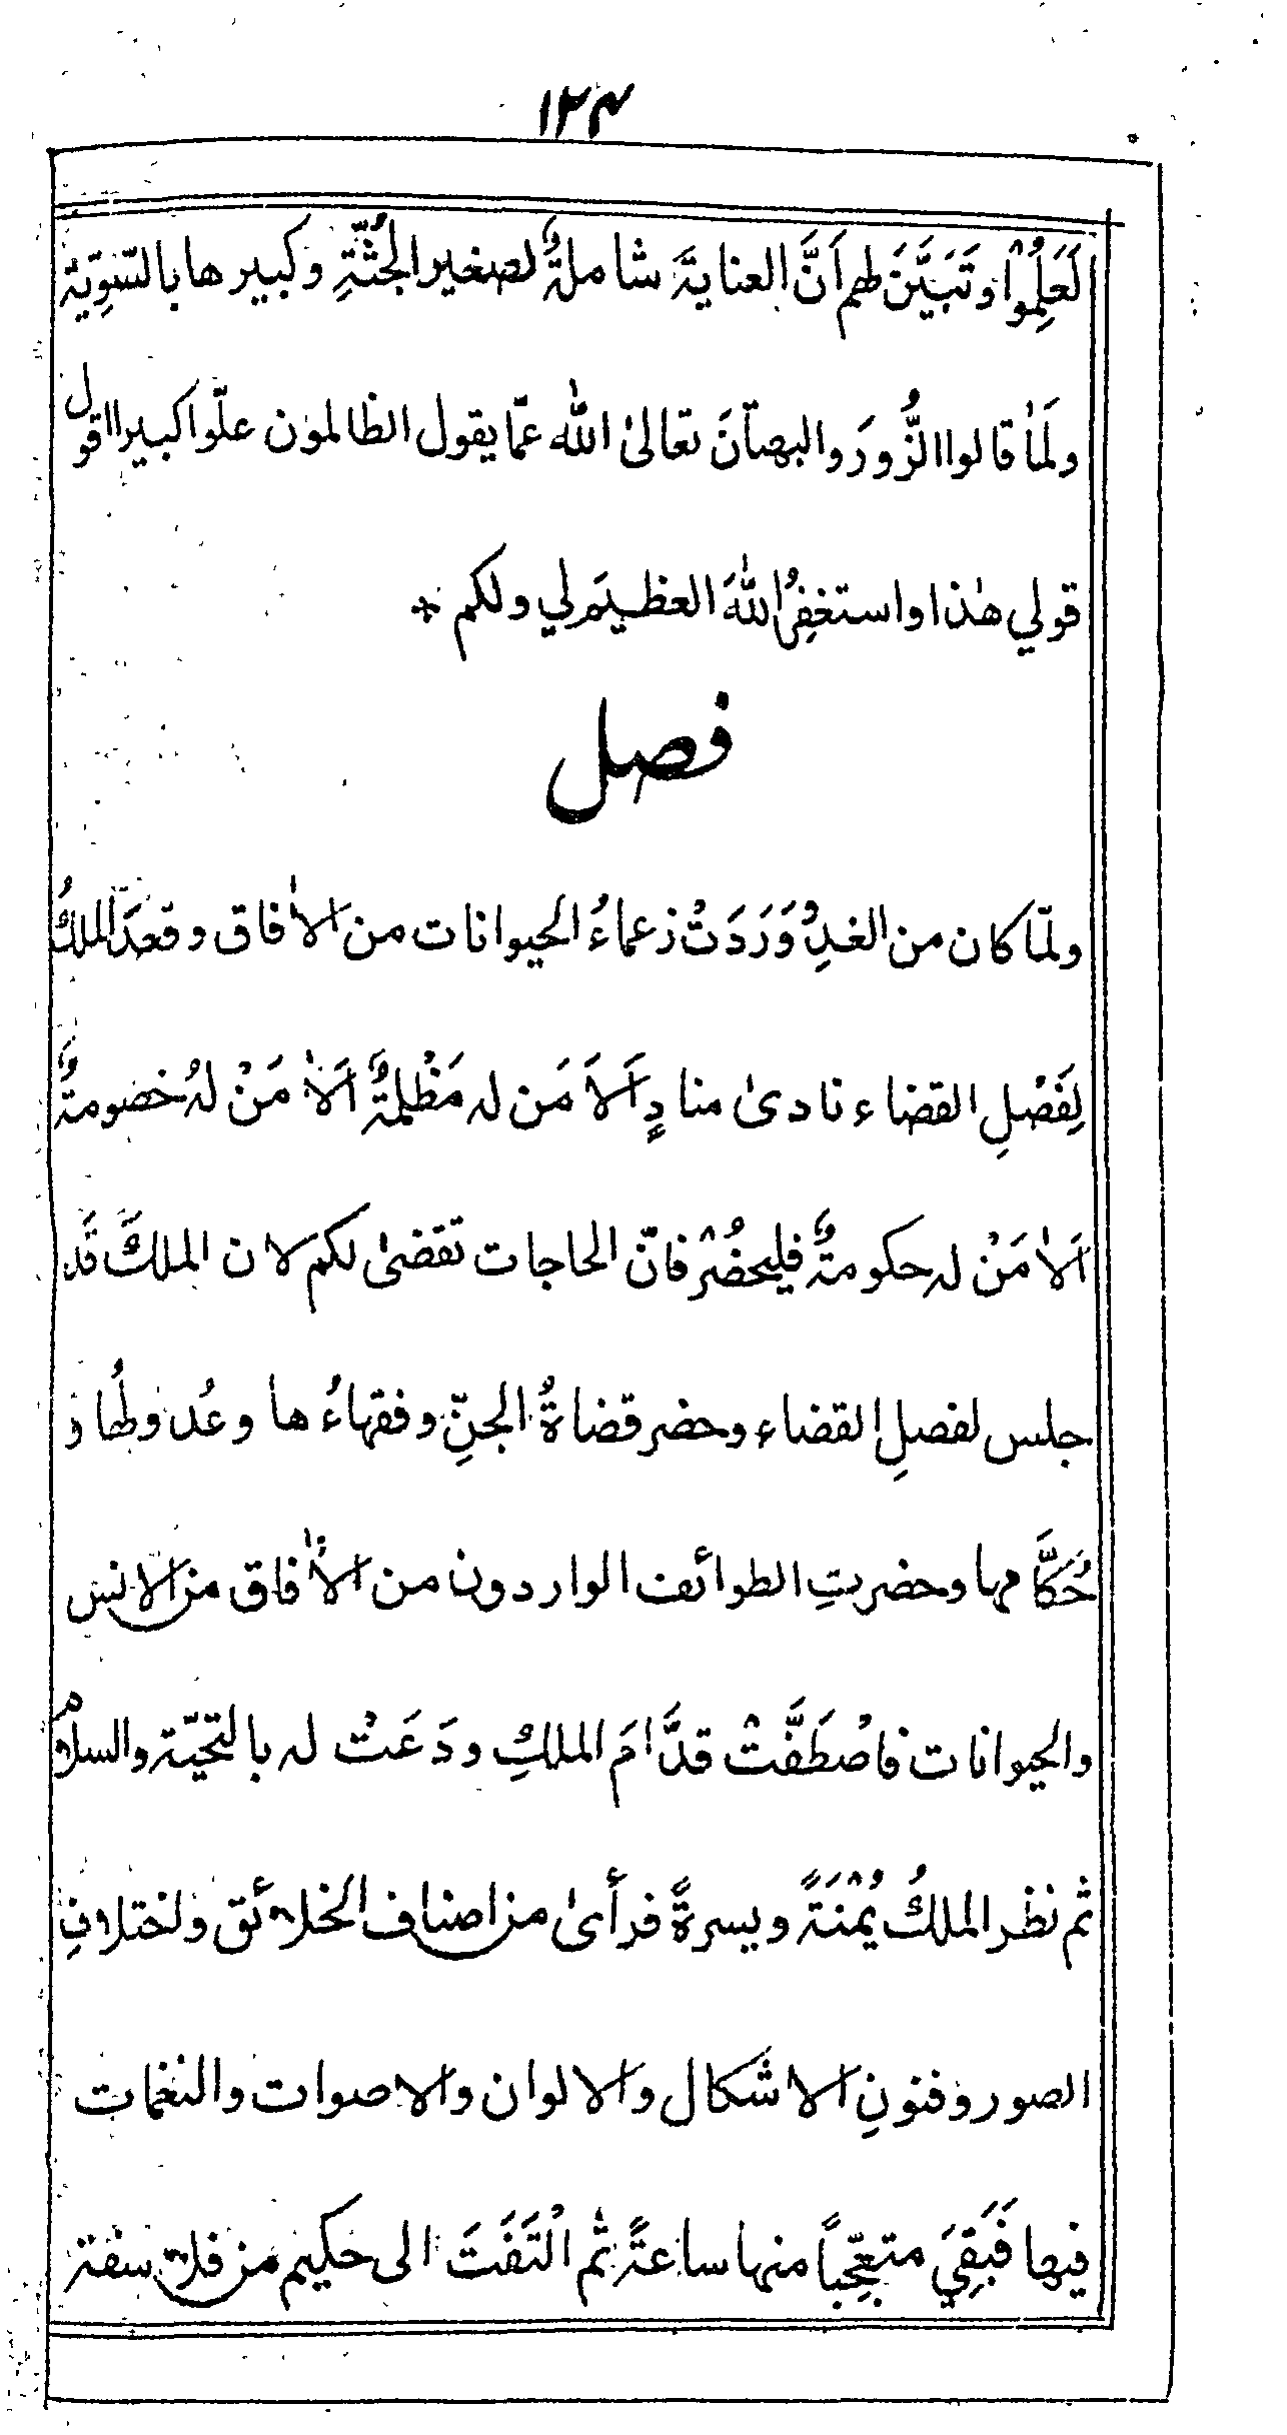 ١٢٤
لَعَلِمُوْا وتَبَيَّنَ لهم اَنَّ العنايةَ شاملةٌ لصغير الجُثّةِ وكبيرها بالسّوِيّة
ولَمَا قالوا الزُّورَ والبهتانَ تعالیٰ اللّٰه عمّا يقول الظالمون علّوا كبيرا اقول
قولي هٰذا واستغفِرُ اللّٰهَ العظيمَ لي ولكم *
فصل
ولمّا كان من الغدِ وَرَدَتْ زعماءُ الحيوانات من الاٰفاق وقعدَ الملكُ
لِفَصْلِ القضاء نادیٰ منادٍ اَلَا مَن له مَظْلمةٌ اَلَا مَنْ لهُ خصومةٌ
اَلَا مَنْ له حكومةٌ فليحضُرْ فانّ الحاجات تقضیٰ لكم لان الملكَ قَد
جلس لفصلِ القضاء وحضر قضاةُ الجنِّ وفقهاءُها وعُدولُها و
حُكَّامها وحضرتِ الطوائف الواردون من الاٰفاق من الانس
والحيوانات فاصْطَفَّتْ قدَّامَ الملكِ ودَعَتْ له بالتحيّة والسلام
ثم نظر الملكُ يُمْنَةً ويسرةً فرأیٰ من اصناف الخلائق واختلافِ
الصور وفنونِ الاشكال والالوان والاصوات والنغمات
فيها فَبَقِيَ متعجِّباً منها ساعةً ثم الْتَفَتَ الى حكيم من فلاسفة